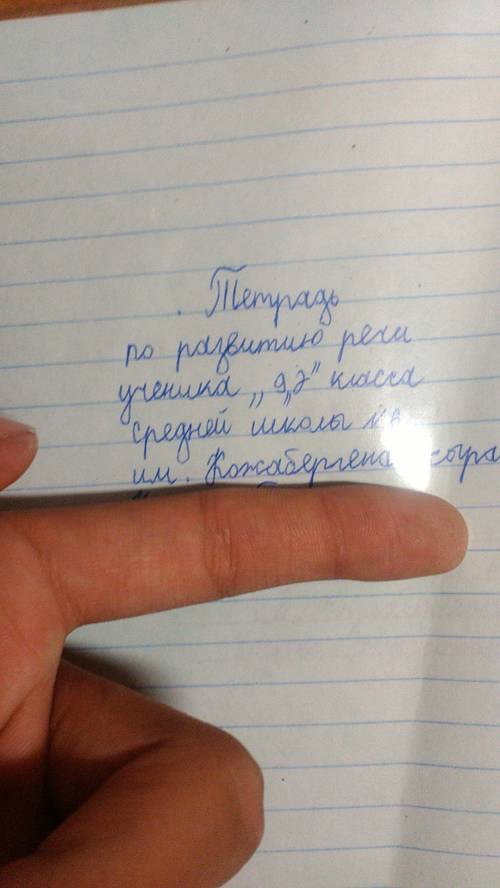 Тетрадь
по развитию речи
ученика „9„ә" класса
средней школы №
им. Кожабергена